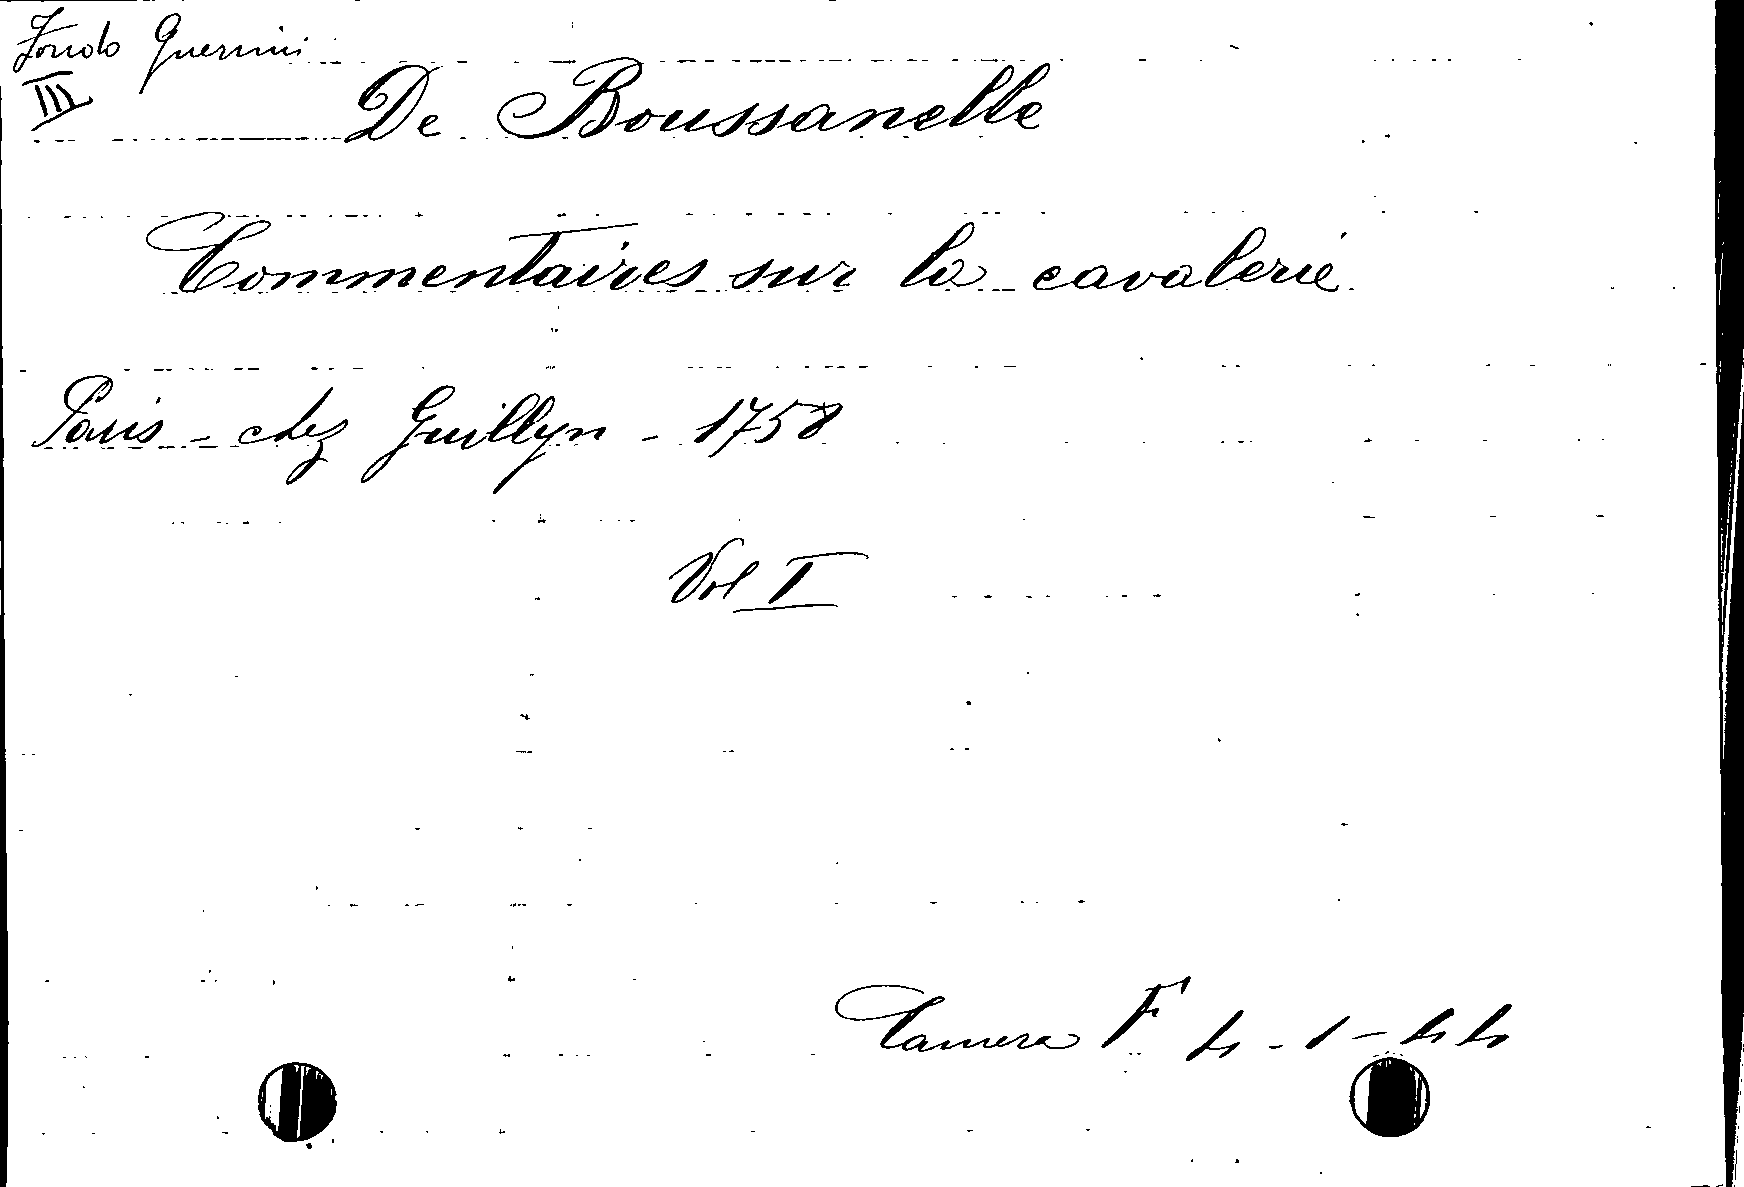 Fondo Guerrini
III
De Boussanelle
Commentaires sur la cavalerie
Paris - chez Guillyn - 1758
Vol I
Camera F 4 - 1 - 44